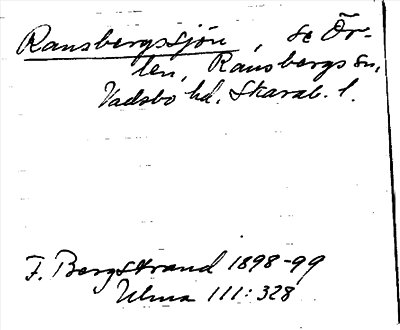 Ransbergssjön, se Ör-
len, Ransbergs sn,
Vadsbo hd. Skarab. l.
F. Bergstrand 1898-99
Ulma 111:328